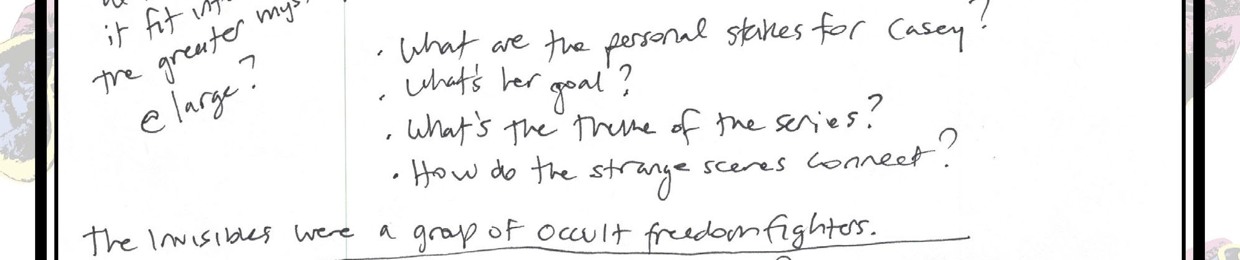 it fit int
the greater mys
@ large?
· What are the personal stakes for Casey?
· What's her goal?
· What's the theme of the series?
· How do the strange scenes connect?
The Invisibles were a group of occult freedom fighters.